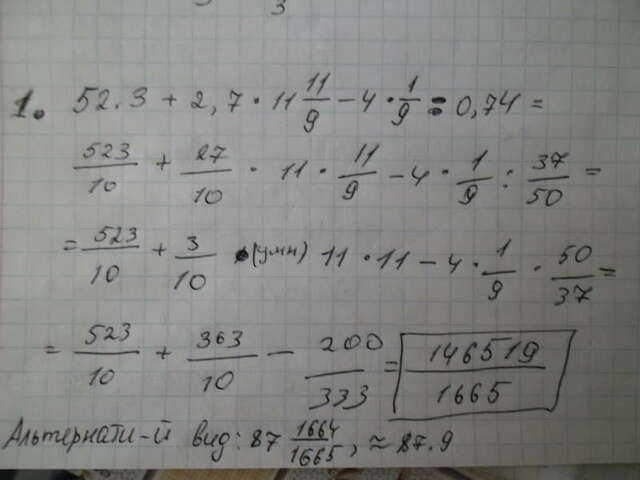 3
1. 52.3 + 2,7 · 11 11/9 - 4 · 1/9 : 0,74 =
523/10 + 27/10 · 11 · 11/9 - 4 · 1/9 : 37/50 =
= 523/10 + 3/10 · (умн) 11 · 11 - 4 · 1/9 · 50/37 =
= 523/10 + 363/10 - 200/333 = 146519/1665
Альтернати-й вид: 87 1664/1665, ≈ 87.9